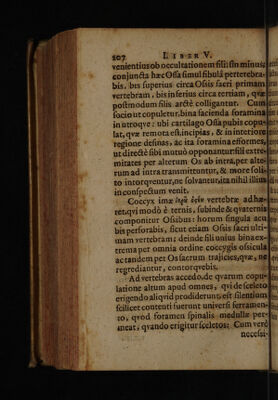 207 LIBER V.
venientius ob occultationem fili: sin minus;
conjuncta hæc Ossa simul fibulâ perterebra-
bis, bis superius circa Ossis sacri primam
vertebram, bis inferius circa tertiam, quæ
postmodum filis arctè colligantur. Cum
socio ut copuletur, bina facienda foramina
in utroque: ubi cartilago Ossa pubis copu-
lat, quæ remota est, incipias, & in interiore
regione desinas, ac ita foramina efformes,
ut directè sibi mutuò opponantur: fili extre-
mitates per alterum Os ab intra, per alte-
rum ad intra transmittuntur, & more soli-
to intorqventur, ne solvantur, ita nihil illius
in conspectum venit.
Coccyx imæ vertebræ adhæ-
ret, qvi modò è ternis, subinde & qvaternis
componitur Ossibus: horum singula acu
bis perforabis, sicut etiam Ossis sacri ulti-
mam vertebram: deinde fili unius bina ex-
trema per omnia ordine coccygis ossicula
ac tandem per Os sacrum trajicies, qvæ, ne
regrediantur, contorqvebis.
Ad vertebras accedo, de qvarum copu-
latione altum apud omnes, qvi de sceleto
erigendo aliqvid prodiderunt, est silentium
scilicet contenti fuerunt universi ferramen-
to, qvod foramen spinalis medullæ per-
meat, qvando erigitur sceletos: Cum verò
necessi-